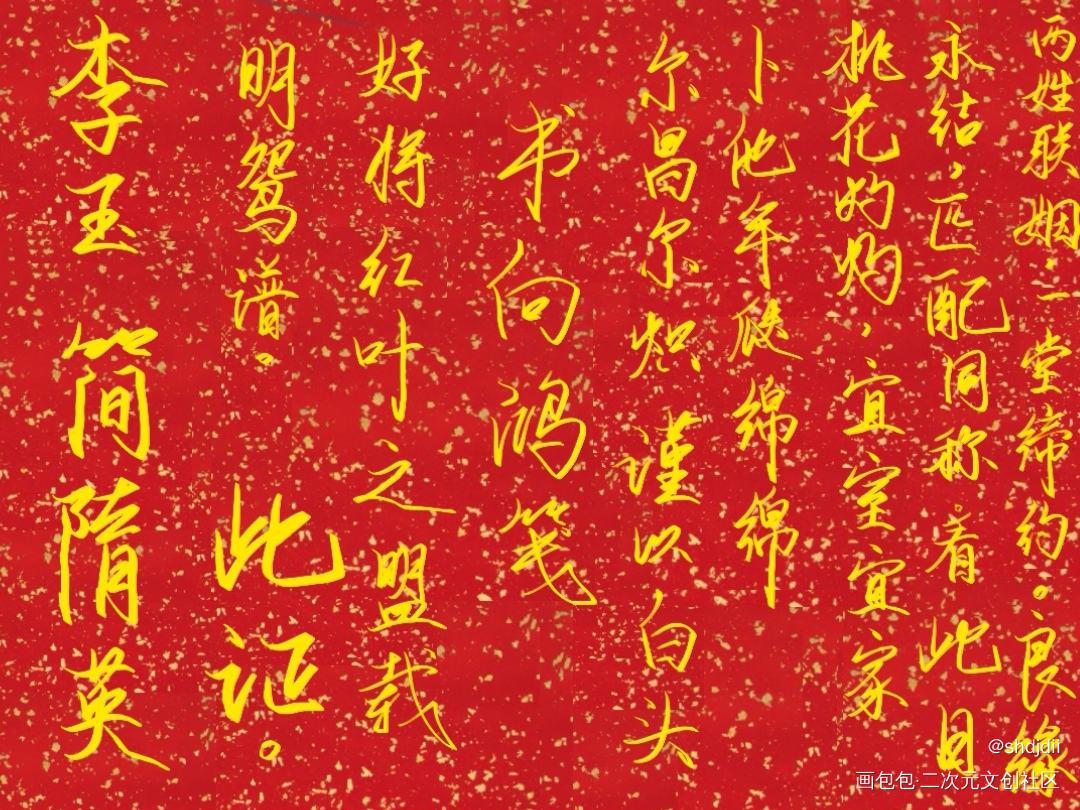 两姓联姻，一堂缔约。良缘
永结，匹配同称。看此日
桃花灼灼，宜室宜家
卜他年瓞绵绵
尔昌尔炽 谨以白头
书向鸿笺
好将红叶之盟载
明鸳谱。 此证。
李玉 简隋英
@shdjdii
画包包·二次元文创社区